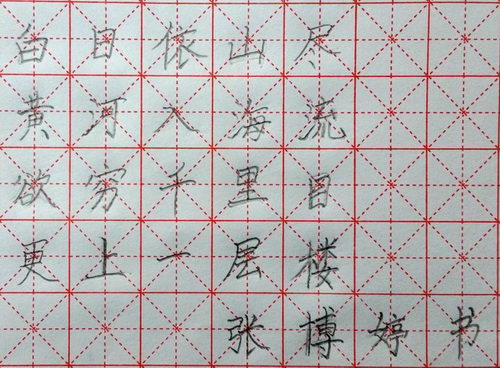 白日依山尽
黄河入海流
欲穷千里目
更上一层楼
张博婷书